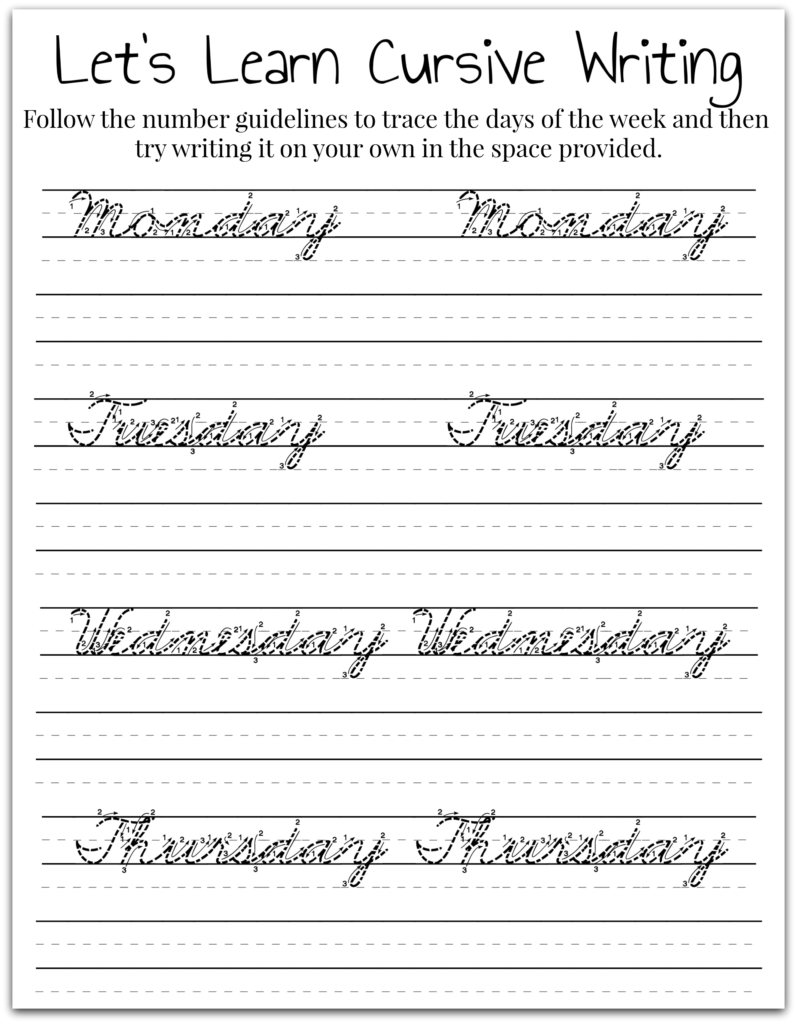 Let's Learn Cursive Writing
Follow the number guidelines to trace the days of the week and then
try writing it on your own in the space provided.
Monday Monday
Tuesday Tuesday
Wednesday Wednesday
Thursday Thursday